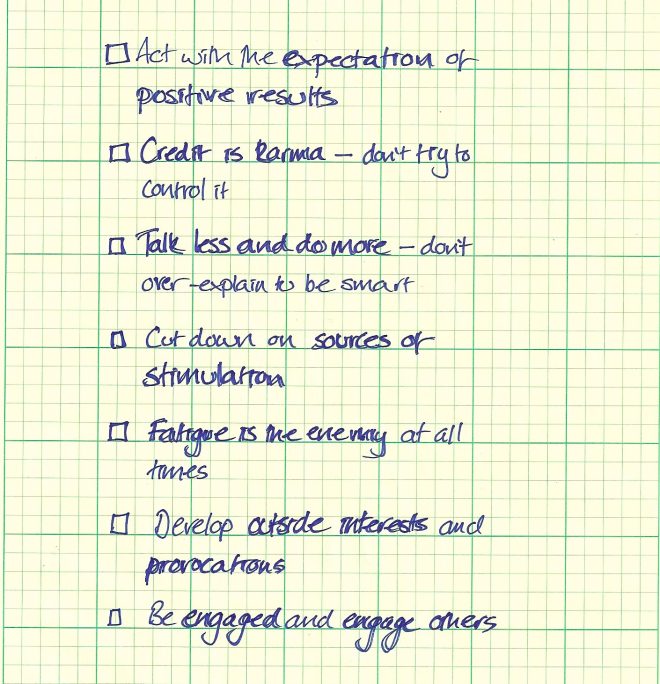 Act with the expectation of
positive results
Credit is karma – don't try to
control it
Talk less and do more – don't
over-explain to be smart
Cut down on sources of
stimulation
Fatigue is the enemy at all
times
Develop outside interests and
provocations
Be engaged and engage others